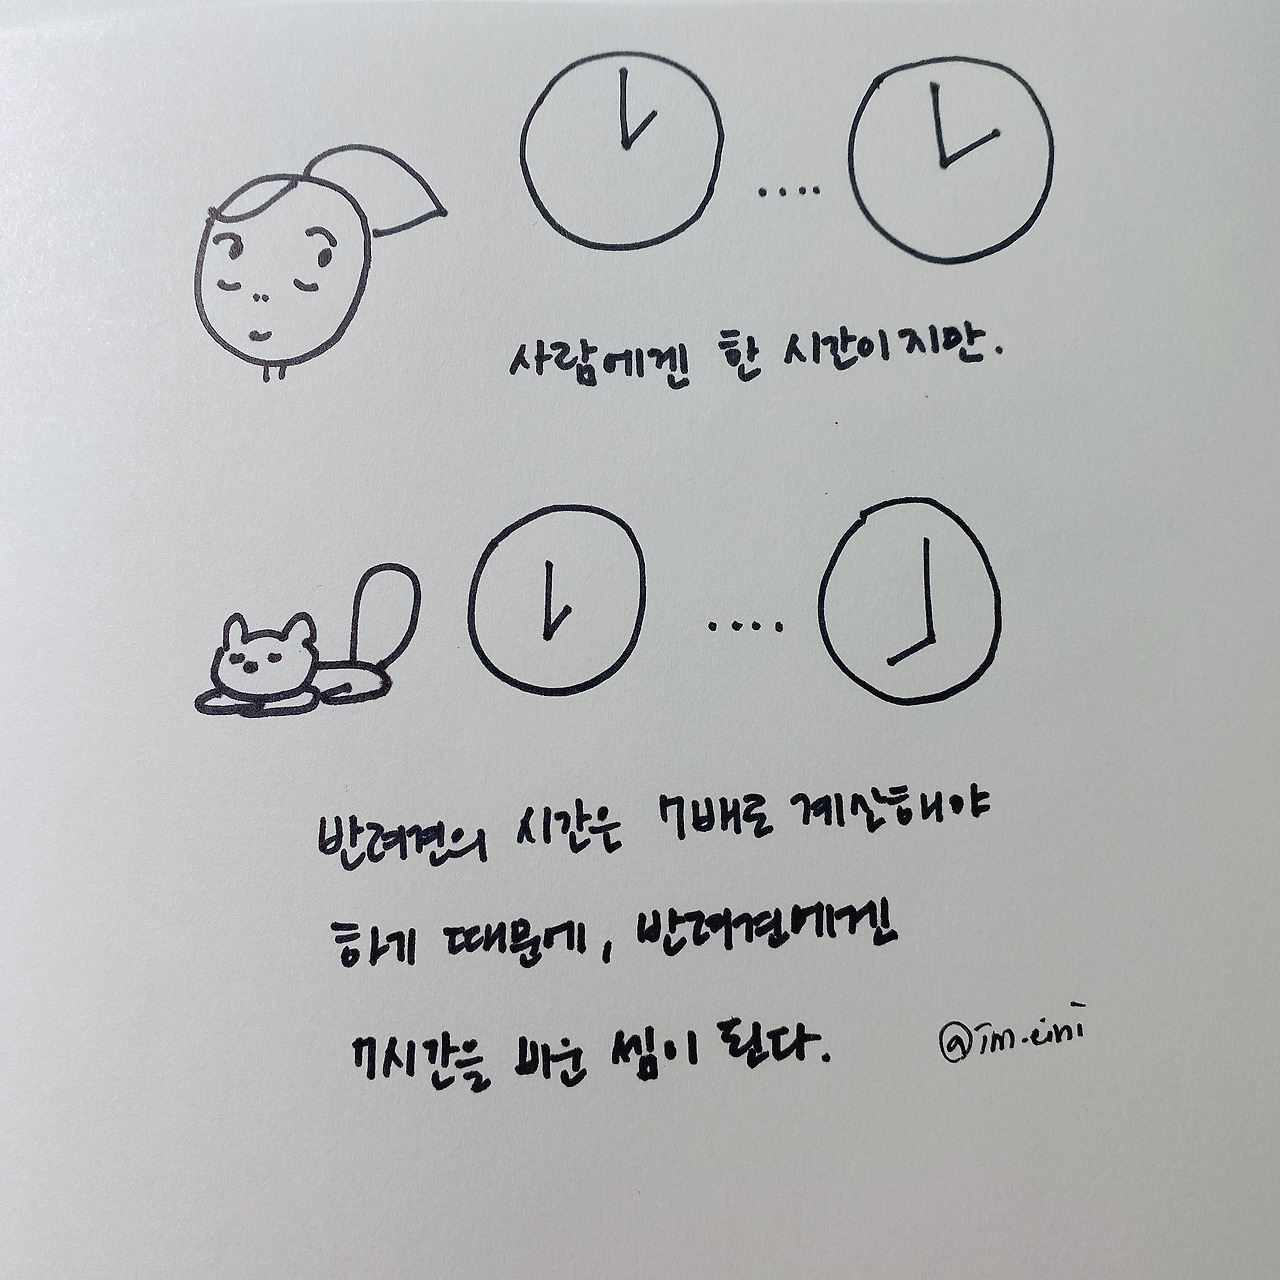 사람에겐 한 시간이지만.
반려견의 시간은 7배로 계산해야
하기 때문에, 반려견에겐
7시간을 비운 셈이 된다.
@im.eini